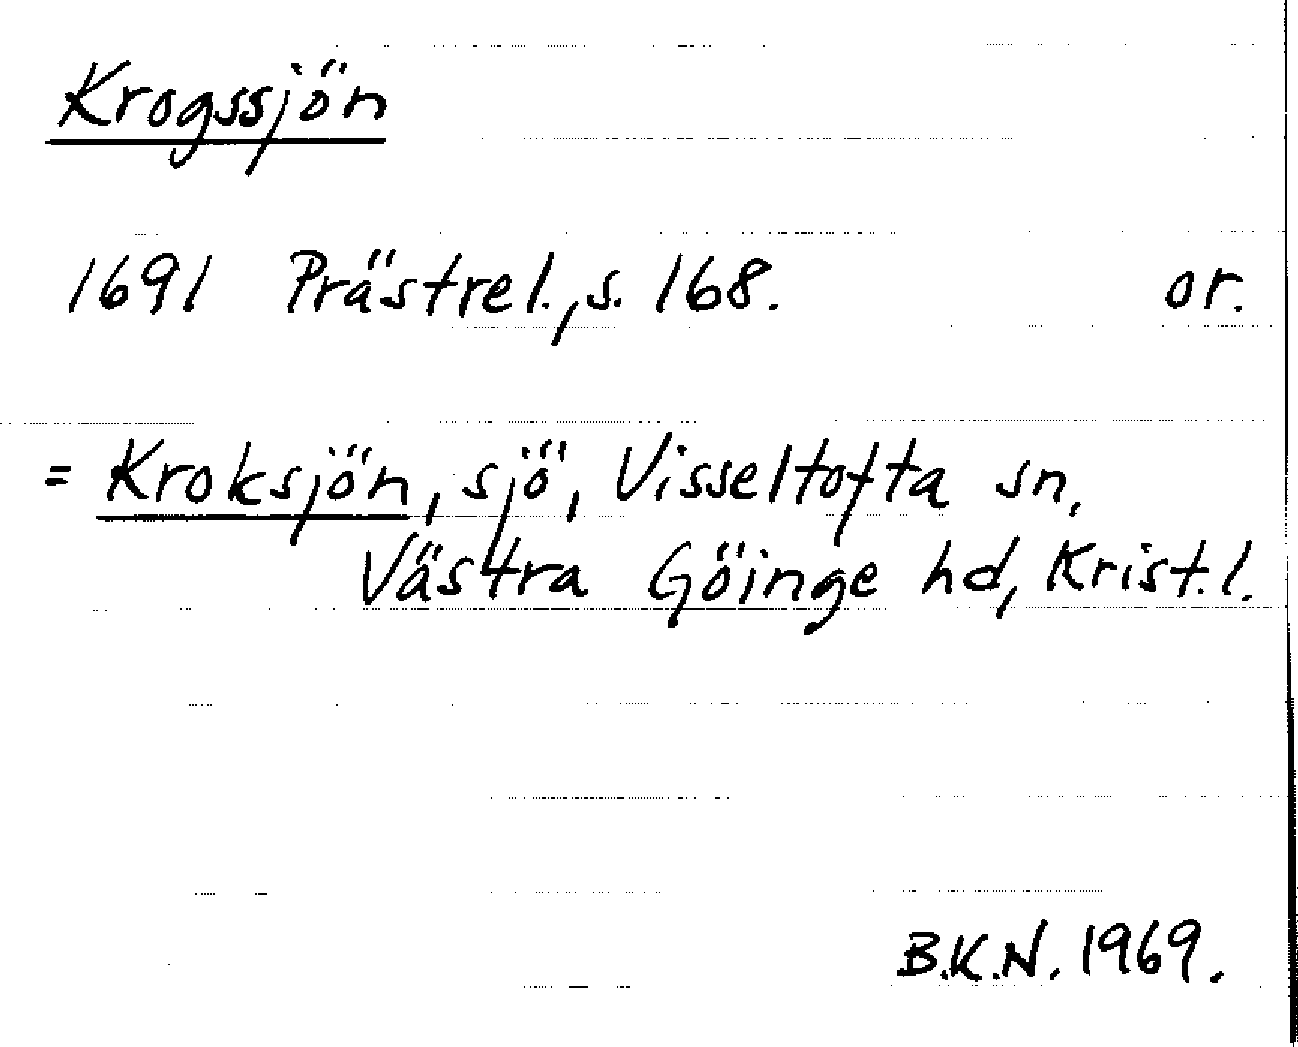 Krogssjön
1691 Prästrel., s. 168. or.
= Kroksjön, sjö, Visseltofta sn,
Västra Göinge hd, Krist.l.
B.K.N. 1969.